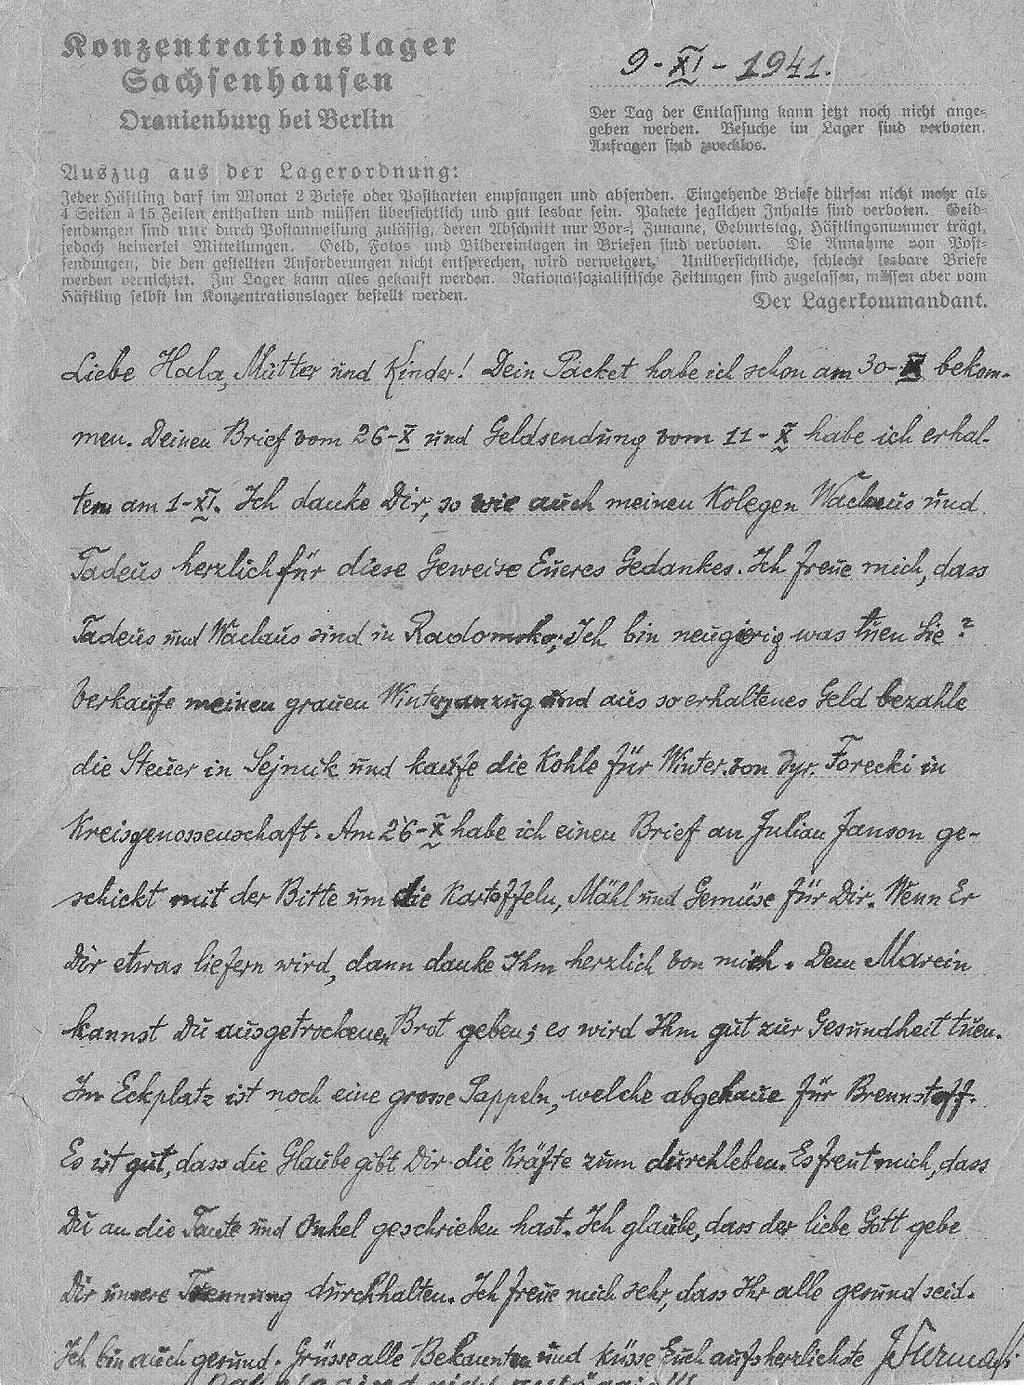 Konzentrationslager
Sachsenhausen
Oranienburg bei Berlin
9-XI-1941.
Der Tag der Entlassung kann jetzt noch nicht ange-
geben werden. Besuche im Lager sind verboten.
Anfragen sind zwecklos.
Auszug aus der Lagerordnung:
Jeder Häftling darf im Monat 2 Briefe oder Postkarten empfangen und absenden. Eingehende Briefe dürfen nicht mehr als
4 Seiten à 15 Zeilen enthalten und müssen übersichtlich und gut lesbar sein. Pakete jeglichen Inhalts sind verboten. Geld-
sendungen sind nur durch Postanweisung zulässig, deren Abschnitt nur Vor-, Zuname, Geburtstag, Häftlingsnummer trägt,
jedoch keinerlei Mitteilungen. Geld, Fotos und Bildereinlagen in Briefen sind verboten. Die Annahme von Post-
sendungen, die den gestellten Anforderungen nicht entsprechen, wird verweigert. Unübersichtliche, schlecht lesbare Briefe
werden vernichtet. Im Lager kann alles gekauft werden. Nationalsozialistische Zeitungen sind zugelassen, müssen aber vom
Häftling selbst im Konzentrationslager bestellt werden.
Der Lagerkommandant.
Liebe Hala, Mutter und Kinder! Dein Packet habe ich schon am 30- bekom-
men. Deinen Brief vom 26-X und Geldsendung vom 11-X habe ich erhal-
ten am 1-XI. Ich danke Dir, so wie auch meinen Kolegen Waclaus und
Tadeus herzlich für diese Geweise Eueres Gedankes. Ich freue mich, dass
Tadeus und Waclaus sind in Radomsko; Ich bin neugierig was tuen Sie?
Verkaufe meinen grauen Winteranzug und aus so erhaltenes Geld bezahle
die Steuer in Sejmik und kaufe die Kohle für Winter von Dyr. Forecki in
Kreisgenossenschaft. Am 26-X habe ich einen Brief an Julian Janson ge-
schickt mit der Bitte um die Kartoffeln, Mähl und Gemüse für Dir. Wenn Er
Dir etwas liefern wird, dann danke Ihm herzlich von mich. Dem Marcin
kannst Du ausgetrockenen Brot geben; es wird Ihm gut zur Gesundheit tuen.
Im Eckplatz ist noch eine grosse Pappeln, welche abgehaue für Brennstoff.
Es ist gut, dass die Glaube gibt Dir die Kräfte zum durchleben. Es freut mich, dass
Du an die Tante und Onkel geschrieben hast. Ich glaube, dass der liebe Gott gebe
Dir unsere Trennung durchhalten. Ich freue mich sehr, dass Ihr alle gesund seid.
Ich bin auch gesund. Grüsse alle Bekannten und küsse Euch aufs herzlichste